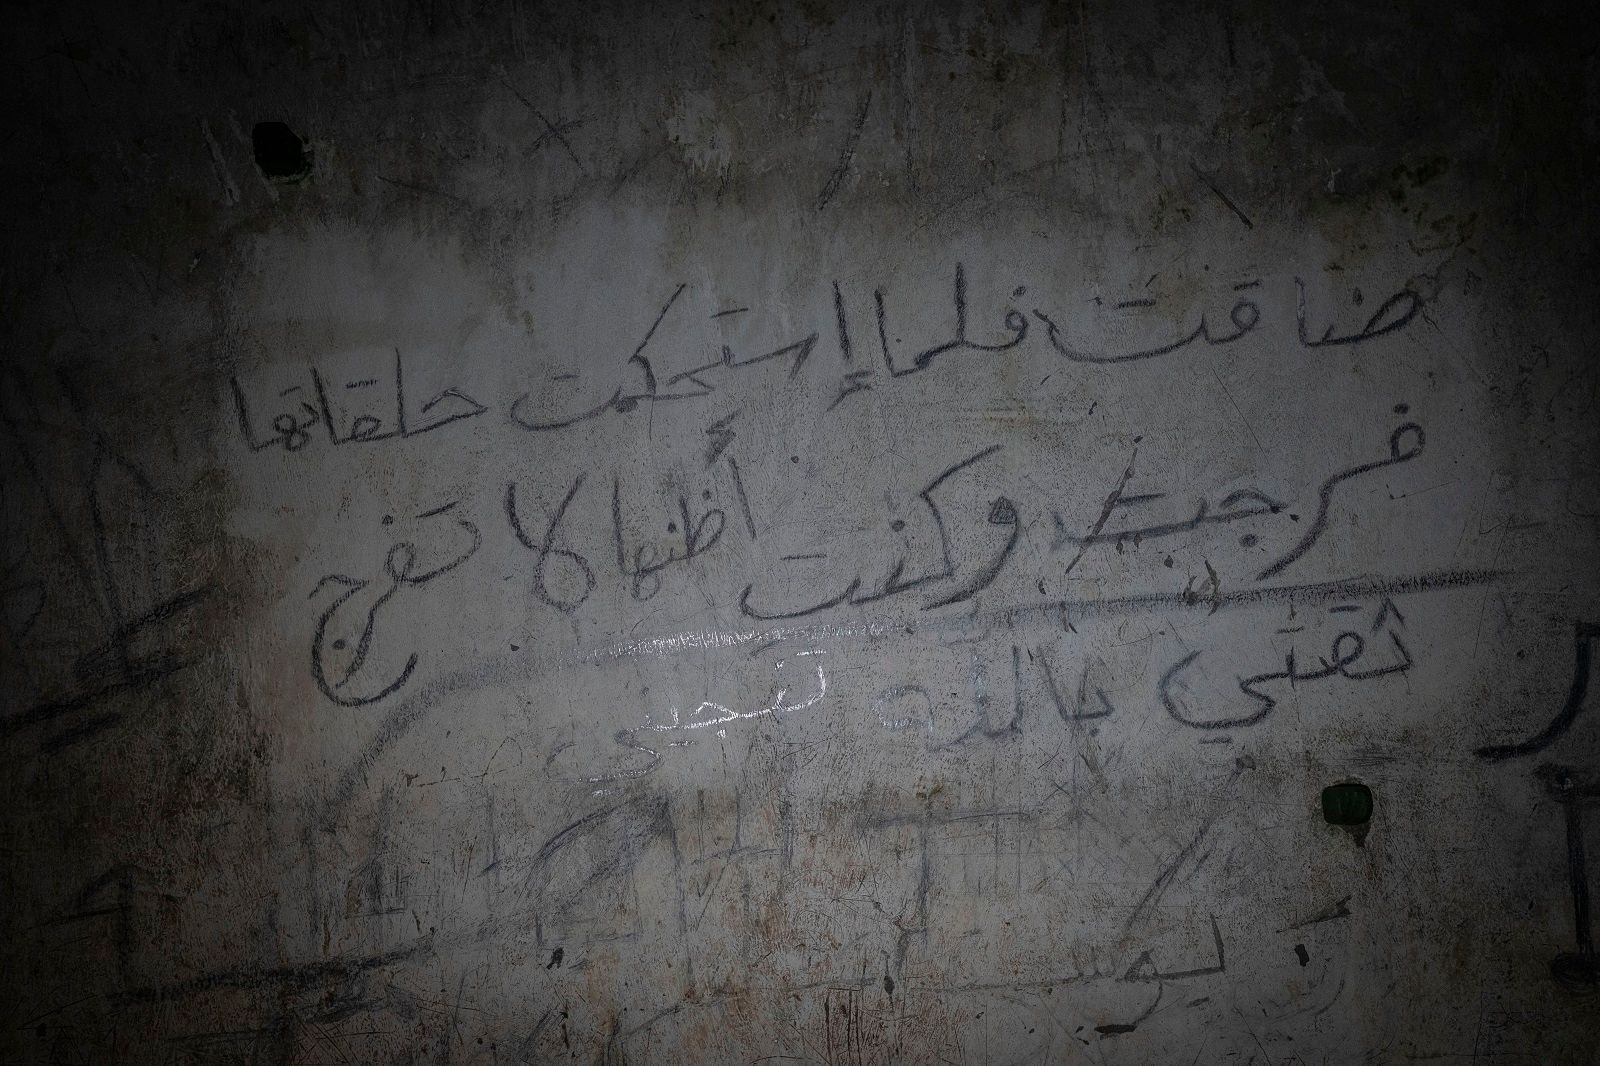 ضاقت فلما إستحكمت حلقاتها
فرجت وكنت أظنها لا تفرج
ثقتي بالله تنجيني